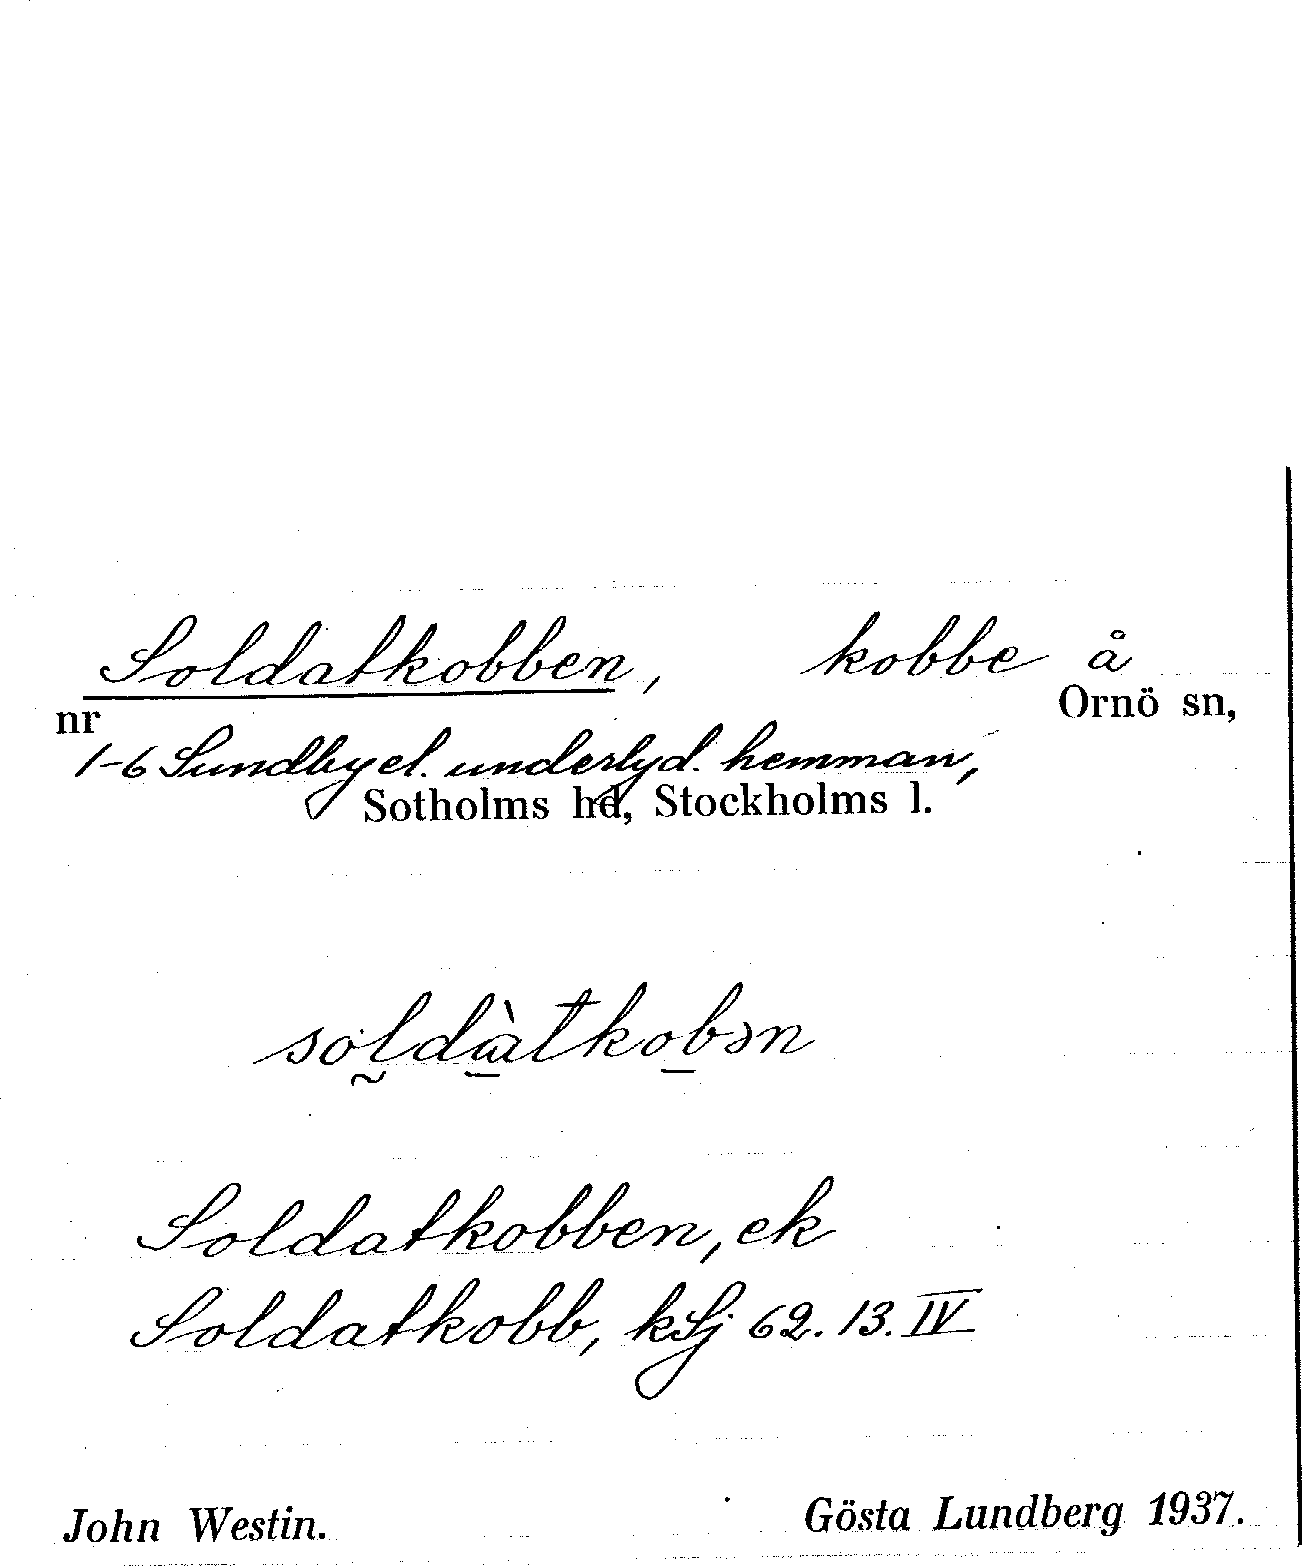 Soldatkobben, kobbe å
nr Ornö sn,
1-6 Sundby el. underlyd. hemman,
Sotholms hd, Stockholms l.
soldàtkobən
Soldatkobben, ek
Soldatkobb, kSj 62. 13. IV
John Westin. Gösta Lundberg 1937.